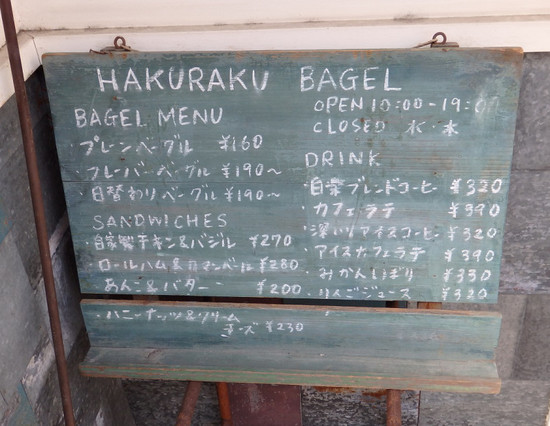 HAKURAKU BAGEL
BAGEL MENU
・プレーンベーグル ¥160
・フレーバーベーグル ¥190〜
・日替わりベーグル ¥190〜
SANDWICHES
・自家製チキン&バジル ¥270
・ロールハム&カマンベール ¥280
・あんこ&バター ¥200
・ハニーナッツ&クリーム
チーズ ¥230
OPEN 10:00-19:00
CLOSED 水・木
DRINK
・自家ブレンドコーヒー ¥320
・カフェラテ ¥390
・深いりアイスコーヒー ¥320
・アイスカフェラテ ¥390
・みかんしぼり ¥330
・りんごジュース ¥320